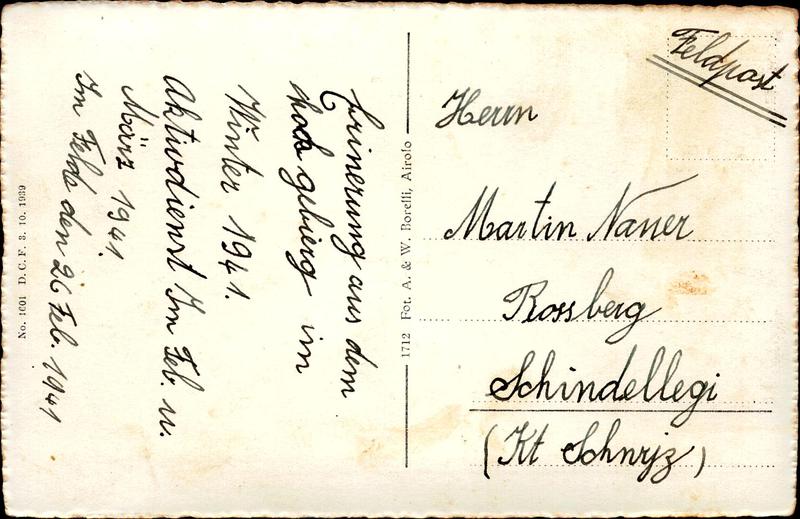 Erinerung aus dem
hoch gebierg im
Winter 1941.
Aktivdienst Im Feb. u.
März 1941.
Im Felde den 26 Feb. 1941
No. 1601 D.C.F. 3. 10. 1939
1712 Fot. A. & W. Borelli, Airolo
Feldpost
Herrn
Martin Nauer
Rossberg
Schindellegi
(Kt Schwyz)